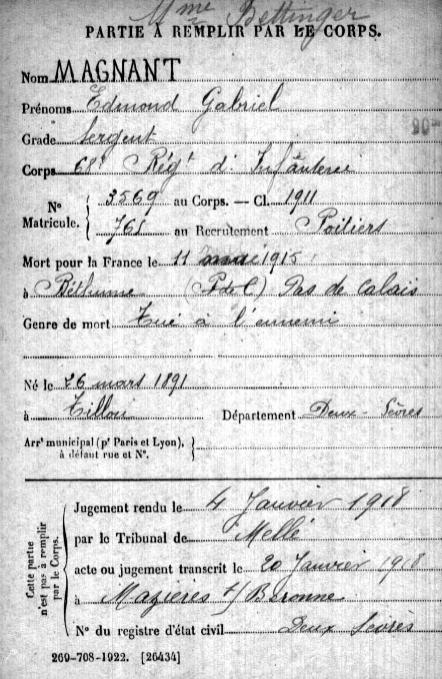 Mme Bettinger
PARTIE À REMPLIR PAR LE CORPS.
Nom MAGNANT
Prénoms Edmond Gabriel
Grade Sergent
Corps 68e Régt d'Infanterie
No Matricule. { 3569 au Corps. — Cl. 1911
765 au Recrutement Poitiers
Mort pour la France le 11 mai 1915
à Béthune (P de C) Pas de Calais
Genre de mort Tué à l'ennemi
Né le 26 mars 1891
à Tillou Département Deux-Sèvres
Arrt municipal (pr Paris et Lyon),
à défaut rue et No.
Cette partie n'est pas à remplir par le Corps.
Jugement rendu le 4 Janvier 1918
par le Tribunal de Melle
acte ou jugement transcrit le 20 Janvier 1918
à Mazières s/ Beronne
No du registre d'état civil Deux Sèvres
269-708-1922. [26434]